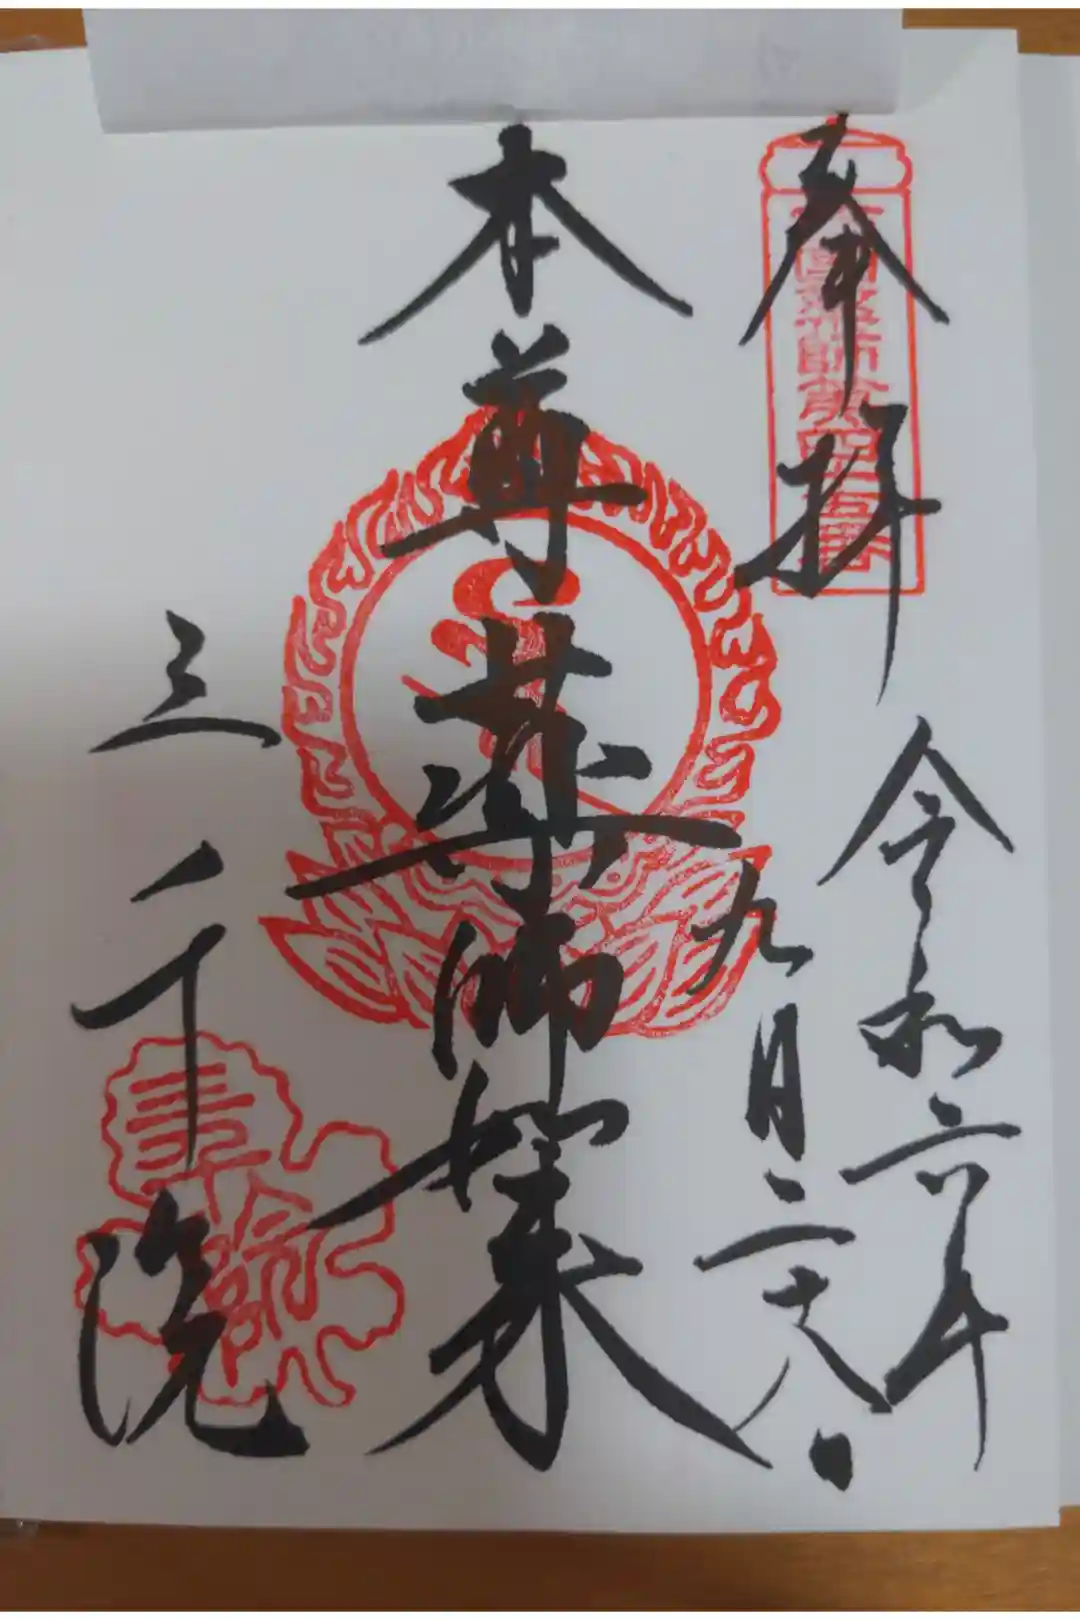 奉拝
令和六年
九月二十八日
本尊薬師如来
三千院